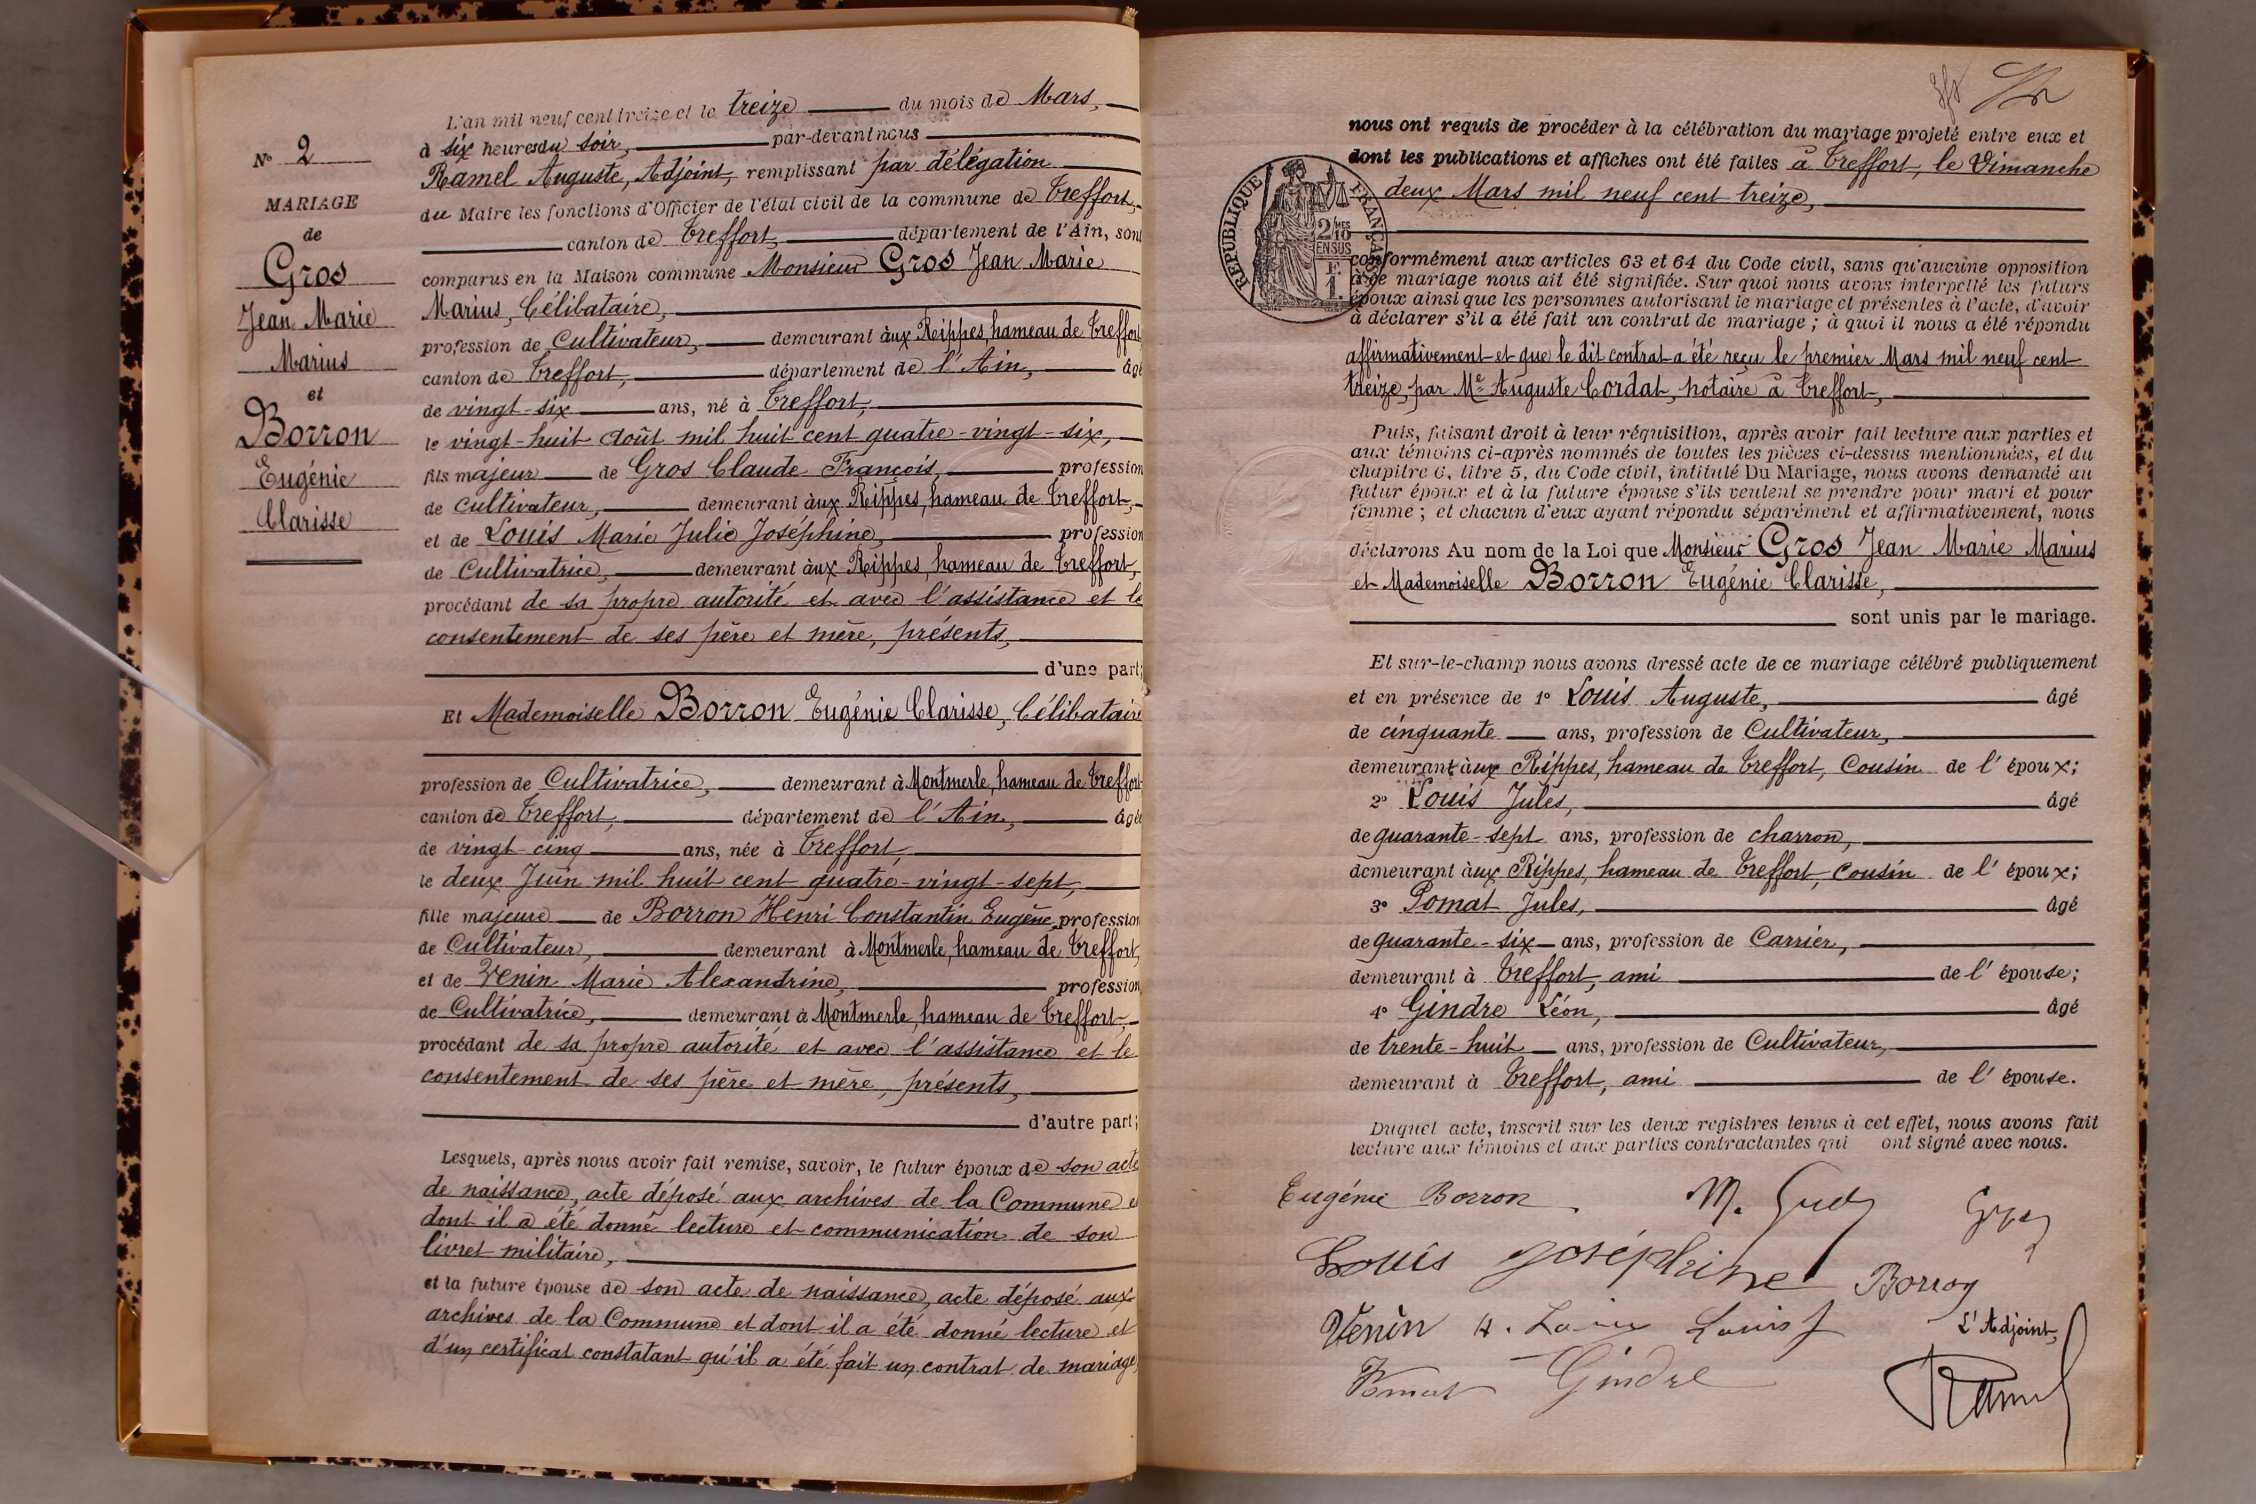 N° 2
MARIAGE
de
Gros
Jean Marie
Marius
et
Borron
Eugénie
Clarisse
L'an mil neuf cent treize et le treize du mois de Mars,
à six heures du soir, par-devant nous
Ramel Auguste, Adjoint, remplissant par délégation
du Maire les fonctions d'Officier de l'état civil de la commune de Treffort,
canton de Treffort, département de l'Ain, sont
comparus en la Maison commune Monsieur Gros Jean Marie
Marius, Célibataire,
profession de Cultivateur, demeurant aux Rippes, hameau de Treffort
canton de Treffort, département de l'Ain, âgé
de vingt-six ans, né à Treffort,
le vingt-huit août mil huit cent quatre-vingt-six,
fils majeur de Gros Claude François, profession
de cultivateur, demeurant aux Rippes, hameau de Treffort,
et de Louis Marie Julie Joséphine, profession
de Cultivatrice, demeurant aux Rippes, hameau de Treffort,
procédant de sa propre autorité et avec l'assistance et le
consentement de ses père et mère, présents,
d'une part;
Et Mademoiselle Borron Eugénie Clarisse, Célibataire
profession de Cultivatrice, demeurant à Montmerle, hameau de Treffort
canton de Treffort, département de l'Ain, âgée
de vingt-cinq ans, née à Treffort,
le deux Juin mil huit cent quatre-vingt-sept,
fille majeure de Borron Henri Constantin Eugène, profession
de Cultivateur, demeurant à Montmerle, hameau de Treffort,
et de Venin Marie Alexandrine, profession
de Cultivatrice, demeurant à Montmerle, hameau de Treffort,
procédant de sa propre autorité et avec l'assistance et le
consentement de ses père et mère, présents,
d'autre part;
Lesquels, après nous avoir fait remise, savoir, le futur époux de son acte
de naissance, acte déposé aux archives de la Commune et
dont il a été donné lecture et communication de son
livret militaire,
et la future épouse de son acte de naissance, acte déposé aux
archives de la Commune et dont il a été donné lecture et
d'un certificat constatant qu'il a été fait un contrat de mariage,
nous ont requis de procéder à la célébration du mariage projeté entre eux et
dont les publications et affiches ont été faites à Treffort, le Dimanche
deux Mars mil neuf cent treize,
RÉPUBLIQUE FRANÇAISE
2/10
EN SUS
F.
1.
conformément aux articles 63 et 64 du Code civil, sans qu'aucune opposition
à ce mariage nous ait été signifiée. Sur quoi nous avons interpellé les futurs
époux ainsi que les personnes autorisant le mariage et présentes à l'acte, d'avoir
à déclarer s'il a été fait un contrat de mariage; à quoi il nous a été répondu
affirmativement et que le dit contrat a été reçu le premier Mars mil neuf cent
treize, par Me Auguste Cordat, notaire à Treffort,
Puis, faisant droit à leur réquisition, après avoir fait lecture aux parties et
aux témoins ci-après nommés de toutes les pièces ci-dessus mentionnées, et du
chapitre 6, titre 5, du Code civil, intitulé Du Mariage, nous avons demandé au
futur époux et à la future épouse s'ils veulent se prendre pour mari et pour
femme; et chacun d'eux ayant répondu séparément et affirmativement, nous
déclarons Au nom de la Loi que Monsieur Gros Jean Marie Marius
et Mademoiselle Borron Eugénie Clarisse,
sont unis par le mariage.
Et sur-le-champ nous avons dressé acte de ce mariage célébré publiquement
et en présence de 1° Louis Auguste, âgé
de cinquante ans, profession de Cultivateur,
demeurant aux Rippes, hameau de Treffort, Cousin de l'époux;
2° Louis Jules, âgé
de quarante-sept ans, profession de charron,
demeurant aux Rippes, hameau de Treffort, cousin de l'époux;
3° Pomat Jules, âgé
de quarante-six ans, profession de Carrier,
demeurant à Treffort, ami de l'épouse;
4° Gindre Léon, âgé
de trente-huit ans, profession de Cultivateur,
demeurant à Treffort, ami de l'épouse.
Duquel acte, inscrit sur les deux registres tenus à cet effet, nous avons fait
lecture aux témoins et aux parties contractantes qui ont signé avec nous.
Eugénie Borron M. Gros Gros
Louis Joséphine Borron
Venin A. Louis Louis J
L'Adjoint,
Pomat Gindre
Ramel